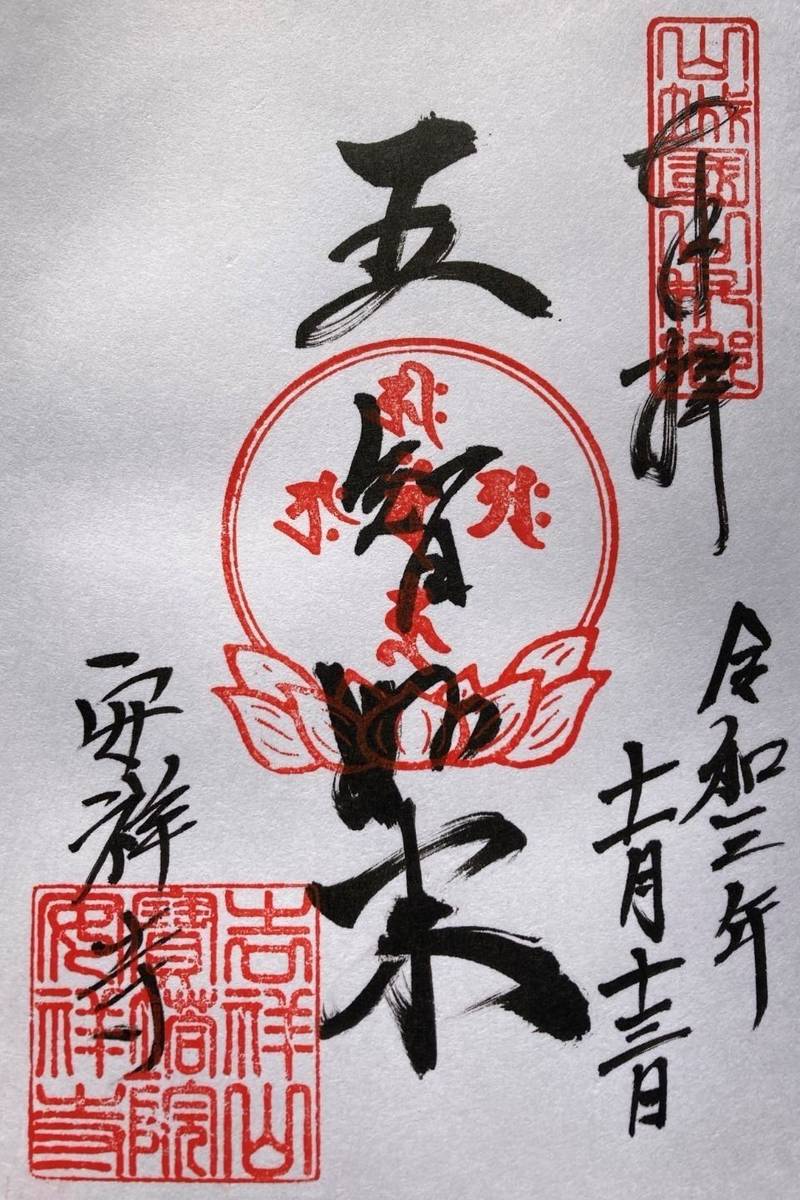 山城國山科郷
奉拝
令和三年
十一月十三日
五智如来
安祥寺
吉祥山
寶塔院
安祥寺